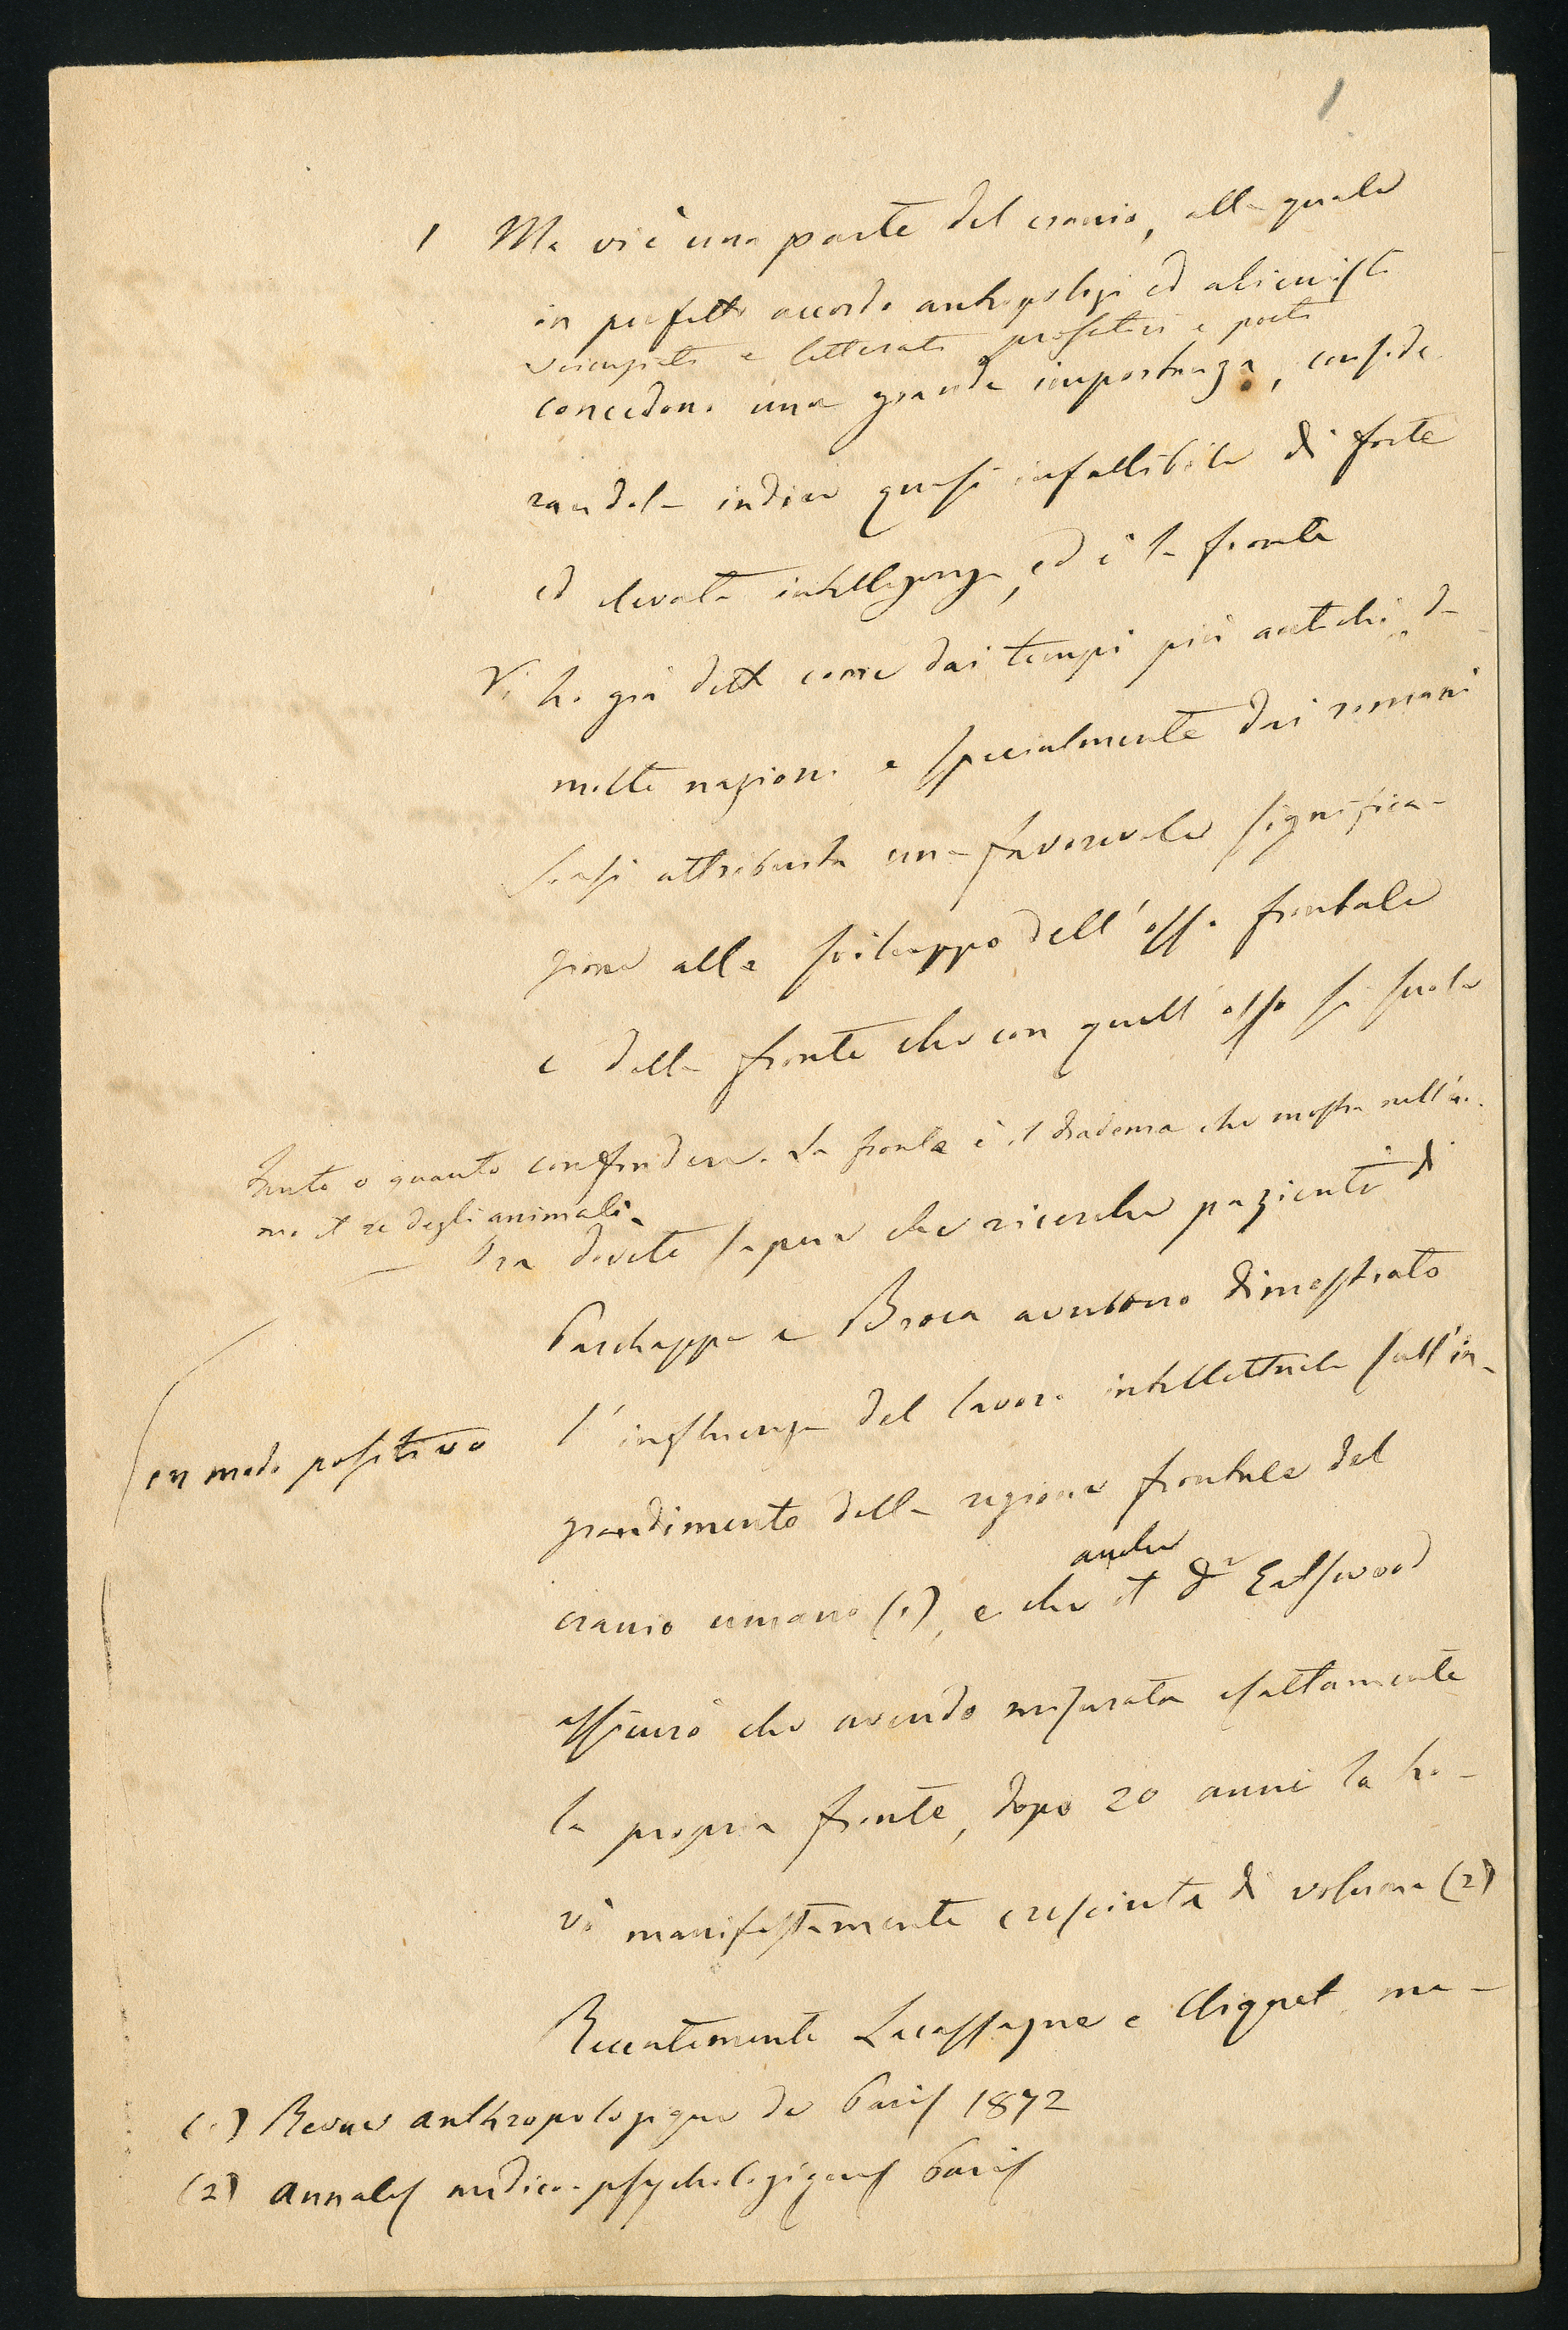 1
1 Ma vi è una parte del cranio, alla quale
in perfetto accordo antropologi ed alienisti
e letterati prosatori e poeti
concedono una grande importanza, conside
randola indice quasi infallibile di forte
ed elevata intelligenza, ed è la fronte
Vi ho già detto come dai tempi più antichi da
molte nazioni e specialmente dai romani
siasi attribuita una favorevole significa-
zione allo sviluppo dell'osso frontale
e della fronte che con quell'osso si suole
tanto o quanto confondere. La fronte è il diadema che mostra nell'uo.
mo il re degli animali.
Ora dovete sapere che ricerche pazienti di
Parchappe e Broca avrebbero dimostrato
in modo positivo
l'influenza del lavoro intellettuale sull'in-
grandimento della regione frontale del
anche
cranio umano (1), e che il Dr Eastwood
assicurò che avendo misurata esattamente
la propria fronte, dopo 20 anni la tro-
vò manifestamente cresciuta di volume (2)
Recentemente Lacassagne e Cliquet me-
(1) Revue anthropologique de Paris 1872
(2) Annales medico-psychologiques Paris